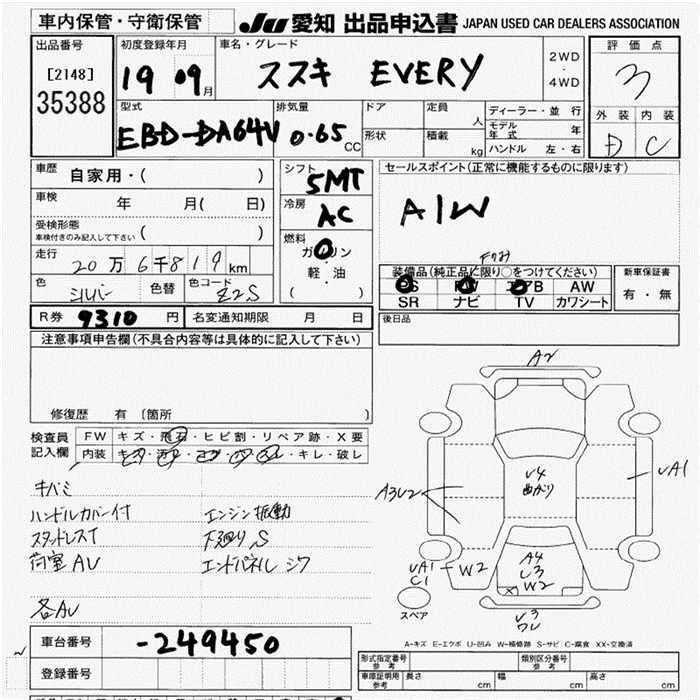 車内保管・守衛保管
JU 愛知 出品申込書 JAPAN USED CAR DEALERS ASSOCIATION
出品番号
[2148]
35388
初度登録年月
19 09月
車名・グレード
スズキ EVERY
2WD
・
4WD
評価点
3
外装 内装
D C
型式
EBD-DA64V
排気量
0.65 CC
ドア
形状
定員 人
積載 kg
ディーラー・並行
モデル年式 年
ハンドル 左・右
車歴 自家用・( )
車検 年 月( 日)
受検形態
車検付きのみ記入して下さい ( )
走行 20万6千819km
色 シルバー 色替 色コード Z2S
シフト 5MT
冷房 AC
燃料
ガソリン
軽・油
( )
セールスポイント(正常に機能するものに限ります)
A/W
装備品(純正品に限り○をつけてください)
PS PW エアB AW
SR ナビ TV カワシート
新車保証書
有・無
R券 9310円 名変通知期限 月 日
後日品
注意事項申告欄(不具合内容等は具体的に記入して下さい)
修復歴 有 〔箇所 〕
検査員
記入欄
FW キズ・飛石・ヒビ割・リペア跡・X要
内装 ・キレ・破レ
キバミ
ハンドルカバー付 エンジン振動
スタッドレスT 下廻りS
荷室AU エンドパネルシワ
各AU
車台番号 -249450
登録番号
A2
U4
曲がり
UA1
A3U2
UA1
C1
W2
A4
U3
W2
U3
ワレ
スペア
A-キズ E-エクボ U-凹み W-補修跡 S-サビ C-腐食 XX-交換済
形式指定番号
参考
類別区分番号
参考
車庫証明用
参考
長さ cm 幅 cm 高さ cm